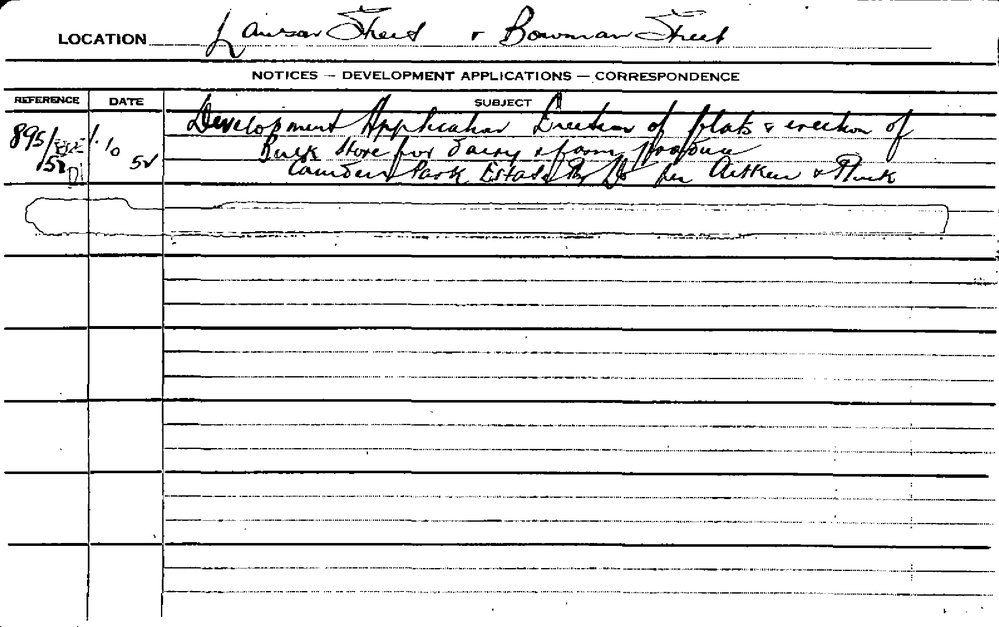 LOCATION Lawson Street & Bowman Street
NOTICES — DEVELOPMENT APPLICATIONS — CORRESPONDENCE
REFERENCE DATE SUBJECT
895/ 1.10 Development Application Erection of flats & erection of
52 52 Bulk Store for dairy & farm produce
Camden Park Estate Pty Ltd per Aitken &